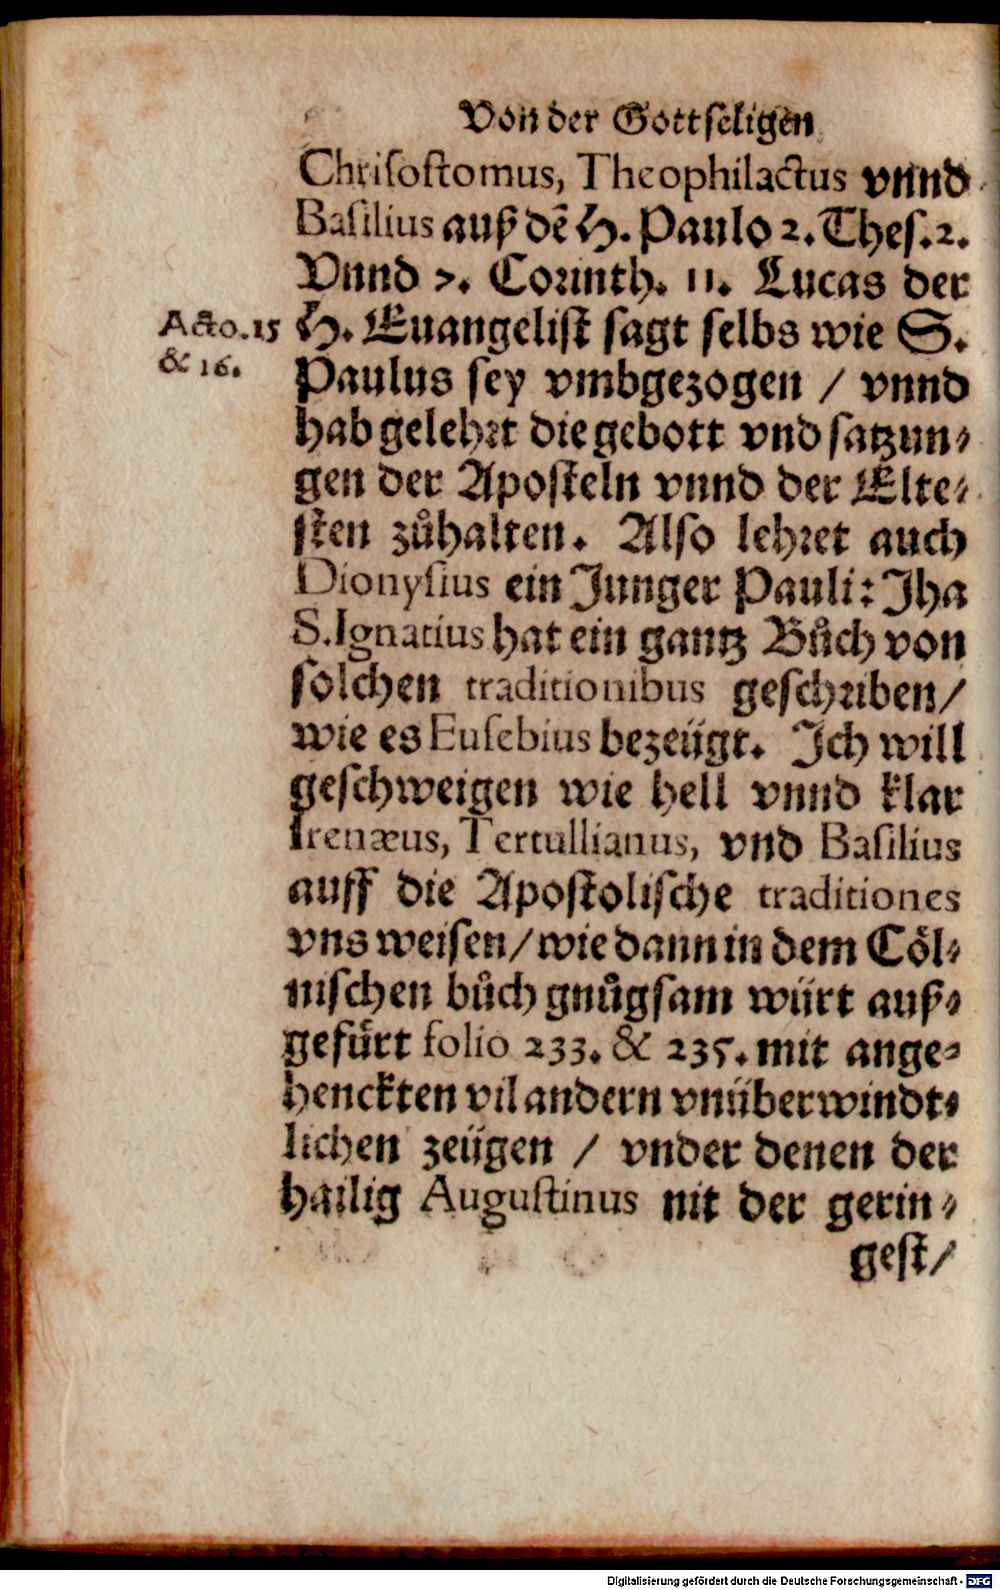 Von der Gottseligen
Chrisostomus, Theophilactus vnnd
Basilius auß dē H. Paulo 2. Thes. 2.
Vnnd >. Corinth. 11. Lucas der
Acto. 15
& 16.
H. Euangelist sagt selbs wie S.
Paulus sey vmbgezogen / vnnd
hab gelehrt die gebott vnd satzun-
gen der Aposteln vnnd der Elte-
sten zůhalten. Also lehret auch
Dionysius ein Junger Pauli: Jha
S. Ignatius hat ein gantz Bůch von
solchen traditionibus geschriben/
wie es Eusebius bezeügt. Ich will
geschweigen wie hell vnnd klar
Irenæus, Tertullianus, vnd Basilius
auff die Apostolische traditiones
vns weisen/ wie dann in dem Cöl-
nischen bůch gnůgsam würt auß-
gefürt folio 233. & 235. mit ange-
henckten vil andern vnüberwindt-
lichen zeügen / vnder denen der
hailig Augustinus nit der gerin-
gest/
Digitalisierung gefördert durch die Deutsche Forschungsgemeinschaft - DFG